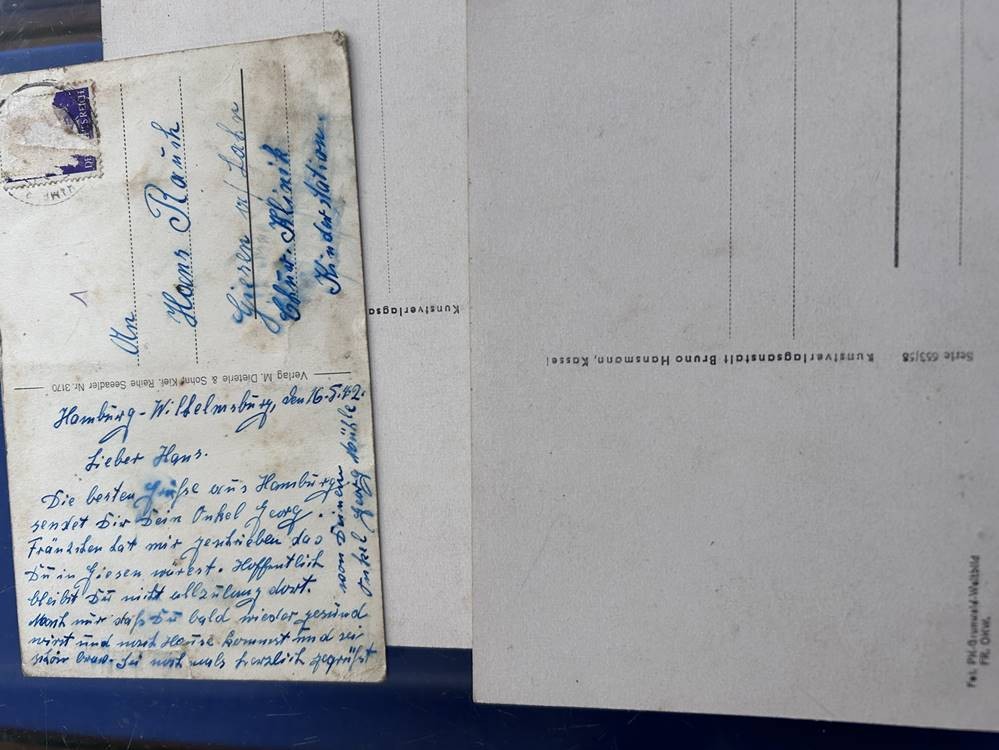 An
Hans Rauch
Giesen a/ Lahn
Chir. Klinik
Kinderstation
1
Verlag M. Dieterle & Sohn, Kiel. Reihe Seeadler Nr. 3170
Hamburg-Wilhelmsburg, den 16.5.42.
Lieber Hans.
Die besten Grüße aus Hamburg
sendet Dir Dein Onkel Georg.
Fränzchen hat mir geschrieben das
Du in Giesen wärest. Hoffentlich
bleibst Du nicht allzulang dort.
Mach nur daß Du bald wieder gesund
wirst und nach Hause kommst und sei
schön brav. Sei noch mals herzlich gegrüßt
von Deinem
Onkel Georg
Kunstverlagsa
Kunstverlagsanstalt Bruno Hansmann, Kassel
Serie 653/58
Fot. PK-Grunwald-Weltbild
FR. OKW.